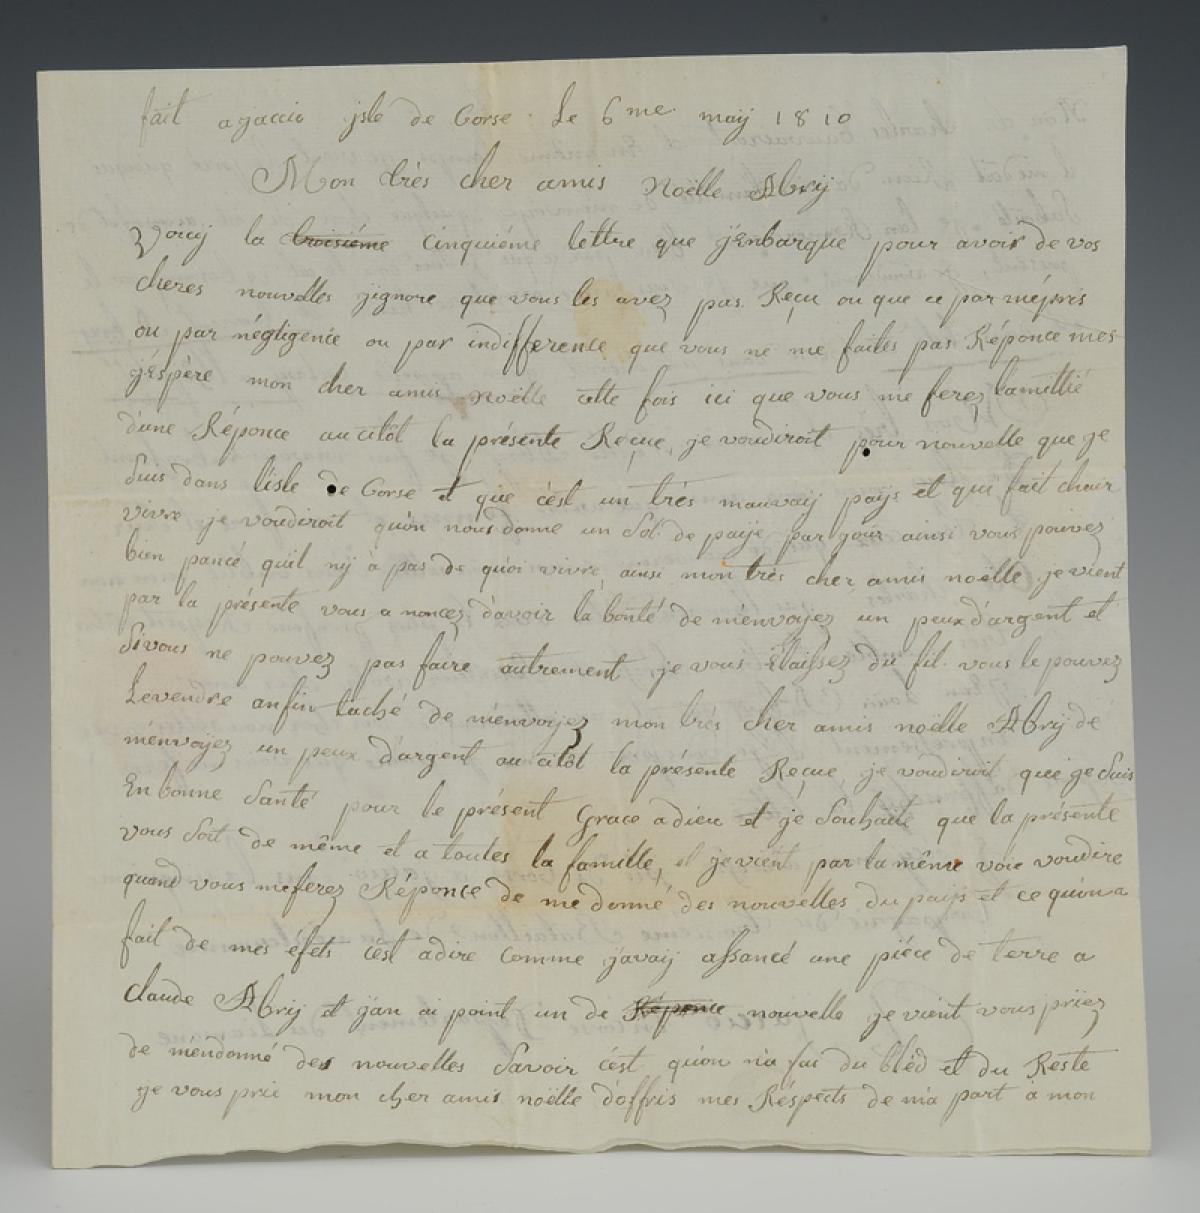 fait ajaccio jsle de Corse. Le 6me maÿ 1810
Mon très cher amis Noëlle Abrÿ
Voicÿ la troisiéme cinquiéme lettre que j'Enbarque pour avoir de vos
cheres nouvelles j'jgnore que vous les avez pas Reçu ou que ce par mépris
ou par négligence ou par indifference que vous ne me faites pas Réponce mes
j'éspère mon cher amis noëlle cette fois ici que vous me ferez lamitié
d'une Réponce aucitôt la présente Reçue, je voudiroit pour nouvelle que je
Suis dans l'isle de Corse et que c'ést un très mauvaÿ paÿs et qui fait chair
vivre je voudiroit qu'on nous donne un Sol. de paÿe par jour ainsi vous pouvez
bien pancé quil n'ÿ à pas de quoi vivre, ainsi mon très cher amis noëlle je vient
par la présente vous a noncez d'avoir la bonté de m'énvoÿez un peux d'argent et
Si vous ne pouvez pas faire autrement je vous élaissez du fil. vous le pouvez
Levendre anfin taché de m'énvoÿez mon très cher amis noëlle Abrÿ de
m'énvoÿez un peux d'argent aucitôt la présente Reçue, je voudiroit que je Suis
En bonne Santé pour le présent Grace a dieu et je Souhaite que la présente
vous Soit de même et a toutes la famille, et je vient par la même voie voudire
quand vous me ferez Réponce de me donné des nouvelles du paÿs et ce qu'on a
fait de mes éfets c'ést adire comme j'avaÿ assancé une piéce de terre a
claude Abrÿ et j'an ai point un de Réponce nouvelle je vient vous priez
de m'éndonné des nouvelles Savoir c'ést qu'on n'a fai du bléd et du Reste
je vous prie mon cher amis noëlle d'offris mes Réspects de m'a part à mon